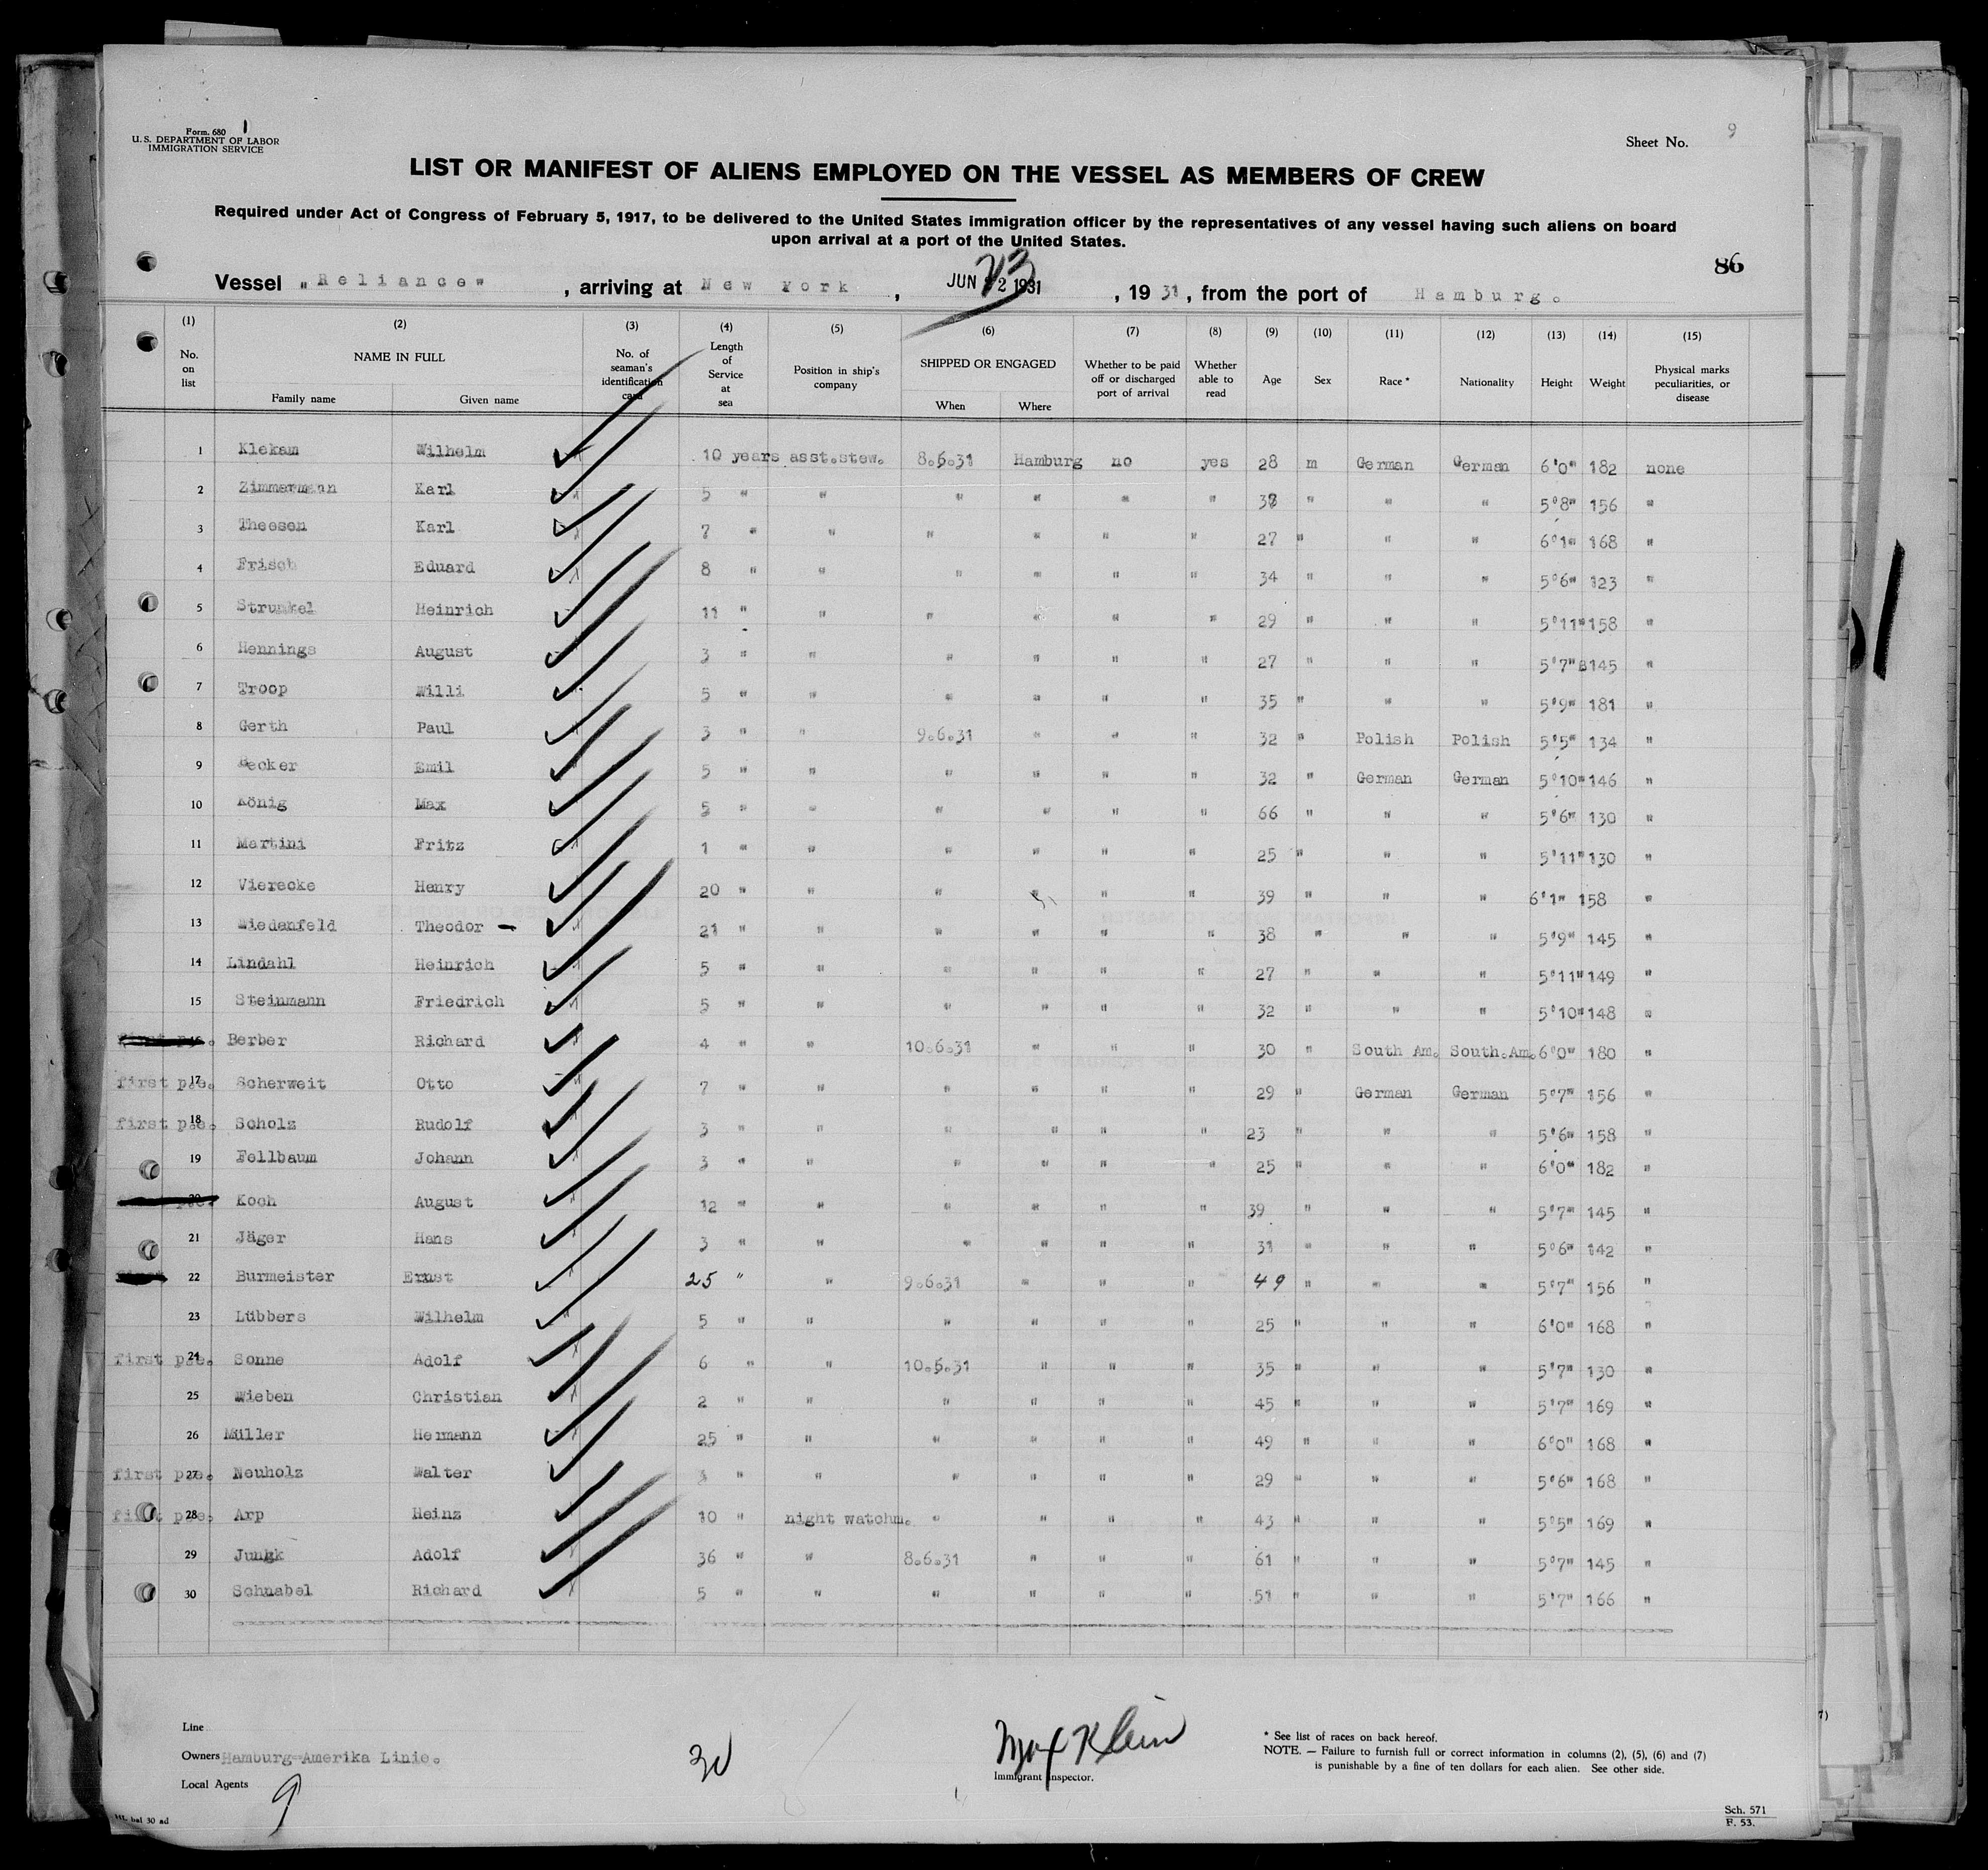 Form. 680 1
U.S. DEPARTMENT OF LABOR
IMMIGRATION SERVICE
Sheet No. 9
LIST OR MANIFEST OF ALIENS EMPLOYED ON THE VESSEL AS MEMBERS OF CREW
Required under Act of Congress of February 5, 1917, to be delivered to the United States immigration officer by the representatives of any vessel having such aliens on board
upon arrival at a port of the United States.
86
Vessel "Reliance", arriving at New York, JUN 23 1931, 19 31, from the port of Hamburg.
(1) (2) (3) (4) (5) (6) (7) (8) (9) (10) (11) (12) (13) (14) (15)
No. on list NAME IN FULL No. of seaman's identification card Length of Service at sea Position in ship's company SHIPPED OR ENGAGED Whether to be paid off or discharged port of arrival Whether able to read Age Sex Race * Nationality Height Weight Physical marks peculiarities, or disease
Family name Given name When Where
1 Klekam Wilhelm 10 years asst.stew. 8.6.31 Hamburg no yes 28 m German German 6'0" 182 none
2 Zimmermann Karl 5 " " " " " " 38 " " " 5'8" 156 "
3 Theesen Karl 7 " " " " " " 27 " " " 6'1" 168 "
4 Frisch Eduard 8 " " " " " " 34 " " " 5'6" 123 "
5 Strunkel Heinrich 11 " " " " " " 29 " " " 5'11" 158 "
6 Hennings August 3 " " " " " " 27 " " " 5'7" 145 "
7 Troop Willi 5 " " " " " " 35 " " " 5'9" 181 "
8 Gerth Paul 3 " " 9.6.31 " " " 32 " Polish Polish 5'5" 134 "
9 Becker Emil 5 " " " " " " 32 " German German 5'10" 146 "
10 König Max 5 " " " " " " 66 " " " 5'6" 130 "
11 Martini Fritz 1 " " " " " " 25 " " " 5'11" 130 "
12 Vierecke Henry 20 " " " " " " 39 " " " 6'1" 158 "
13 Wiedenfeld Theodor - 21 " " " " " " 38 " " " 5'9" 145 "
14 Lindahl Heinrich 5 " " " " " " 27 " " " 5'11" 149 "
15 Steinmann Friedrich 5 " " " " " " 32 " " " 5'10" 148 "
16 Berber Richard 4 " " 10.6.31 " " " 30 " South Am. South.Am. 6'0" 180 "
first pae. 17 Scherweit Otto 7 " " " " " " 29 " German German 5'7" 156 "
first pae. 18 Scholz Rudolf 3 " " " " " " 23 " " " 5'6" 158 "
19 Fellbaum Johann 3 " " " " " " 25 " " " 6'0" 182 "
20 Koch August 12 " " " " " " 39 " " " 5'7" 145 "
21 Jäger Hans 3 " " " " " " 31 " " " 5'6" 142 "
22 Burmeister Ernst 25 " " 9.6.31 " " " 49 " " " 5'7" 156 "
23 Lübbers Wilhelm 5 " " " " " " 25 " " " 6'0" 168 "
first pae. 24 Sonne Adolf 6 " " 10.5.31 " " " 35 " " " 5'7" 130 "
25 Wieben Christian 2 " " " " " " 45 " " " 5'7" 169 "
26 Müller Hermann 25 " " " " " " 49 " " " 6'0" 168 "
first pae. 27 Neuholz Walter " " " " " " 29 " " " 5'6" 168 "
first pae. 28 Arp Heinz 10 " night watchm. " " " " 43 " " " 5'5" 169 "
29 Jungk Adolf 36 " " 8.6.31 " " " 61 " " " 5'7" 145 "
30 Schnabel Richard 5 " " " " " " 51 " " " 5'7" 166 "
Line
Owners Hamburg-Amerika Linie.
Local Agents
9
30
Max Klein
Immigrant Inspector.
* See list of races on back hereof.
NOTE. — Failure to furnish full or correct information in columns (2), (5), (6) and (7)
is punishable by a fine of ten dollars for each alien. See other side.
Sch. 571
F. 53.